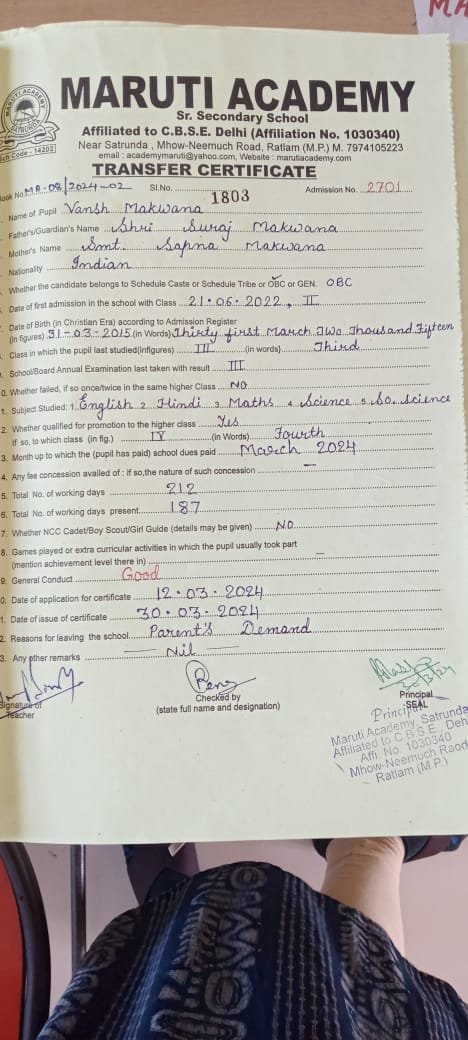 MA
MARUTI ACADEMY
Sr. Secondary School
Affiliated to C.B.S.E. Delhi (Affiliation No. 1030340)
Near Satrunda , Mhow-Neemuch Road, Ratlam (M.P.) M. 7974105223
email : academymaruti@yahoo.com, Website : marutiacademy.com
MARUTI ACADEMY
SATRUNDA
ch Code - 14202
TRANSFER CERTIFICATE
ook No. MA-08/2024-02 Sl.No. 1803 Admission No. 2701
. Name of Pupil Vansh Makwana
. Father's/Guardian's Name Shri Suraj Makwana
. Mother's Name Smt. Sapna Makwana
. Nationality Indian
. Whether the candidate belongs to Schedule Caste or Schedule Tribe or OBC or GEN. OBC
. Date of first admission in the school with Class 21.06.2022, II
. Date of Birth (in Christian Era) according to Admission Register
(in figures) 31-03-2015 (in Words) Thirty first March Two Thousand Fifteen
. Class in which the pupil last studied(infigures) III (in words) Third
. School/Board Annual Examination last taken with result III
0. Whether failed, if so once/twice in the same higher Class NO
1. Subject Studied: 1 English 2 Hindi 3 Maths 4 Science 5 So. Science
2. Whether qualified for promotion to the higher class Yes
If so, to which class (in fig.) IV (in Words) Fourth
3. Month up to which the (pupil has paid) school dues paid March 2024
4. Any fee concession availed of : if so,the nature of such concession –
5. Total No. of working days 212
6. Total No. of working days present 187
7. Whether NCC Cadet/Boy Scout/Girl Guide (details may be given) NO
8. Games played or extra curricular activities in which the pupil usually took part –
(mention achievement level there in)
9. General Conduct Good
0. Date of application for certificate 12.03.2024
1. Date of issue of certificate 30.03.2024
2. Reasons for leaving the school Parent's Demand
3. Any other remarks — Nil —
Signature of
Teacher
Checked by
(state full name and designation)
30/3/24
Principal
SEAL
Principal
Maruti Academy, Satrunda
Affiliated to C.B.S.E. Delh
Affi. No. 1030340
Mhow-Neemuch Raod
Ratlam (M.P.)